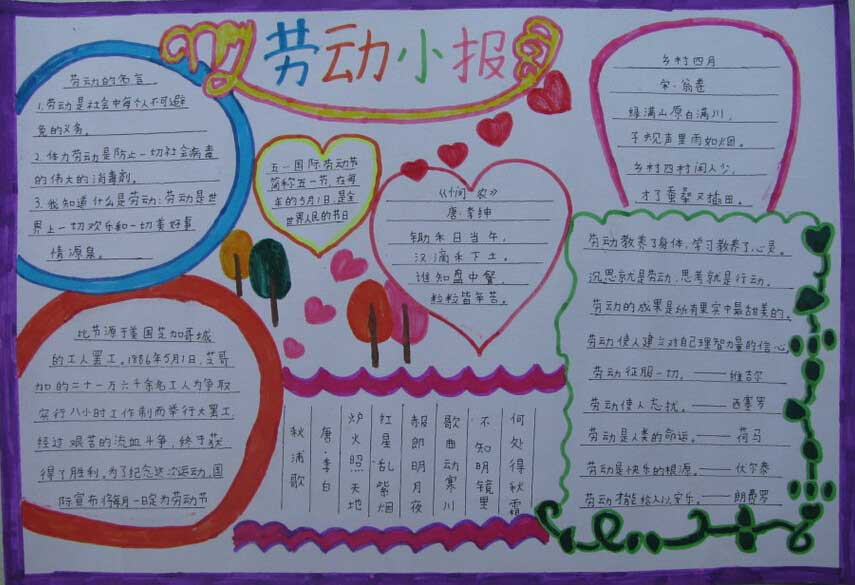 劳动小报
劳动的名言
1.劳动是社会中每个人不可避
免的义务。
2.体力劳动是防止一切社会病毒
的伟大的消毒剂。
3.我知道什么是劳动:劳动是世
界上一切欢乐和一切美好事
情源泉。
五一国际劳动节
简称五一节,在每
年的5月1日,是全
世界人民的节日
《悯 农》
唐·李绅
锄禾日当午,
汉滴禾下土。
谁知盘中餐,
粒粒皆辛苦。
乡村四月
宋·翁卷
绿满山原白满川,
子规声里雨如烟。
乡村四村闲人少,
才了蚕桑又插田。
比节源于美国芝加哥城
的工人罢工。1886年5月1日,芝哥
加的二十一万六千余名工人为争取
实行八小时工作制而举行大罢工,
经过艰苦的流血斗争,终于获
得了胜利。为了纪念这次运动,国
际宣布将每月一日定为劳动节
秋浦歌
唐·李白
炉火照天地
红星乱紫烟
郎明月夜
歌曲动寒川
不知明镜里
何处得秋霜
劳动教养了身体,学习教养了心灵。
沉思就是劳动,思考就是行动。
劳动的成果是所有果实中最甜美的。
劳动使人建立对自己理智力量的信心。
劳动征服一切。——维吉尔
劳动使人忘忧。——西塞罗
劳动是人类的命运。——荷马
劳动是快乐的根源。——伏尔泰
劳动才能给人以安乐。——朗费罗